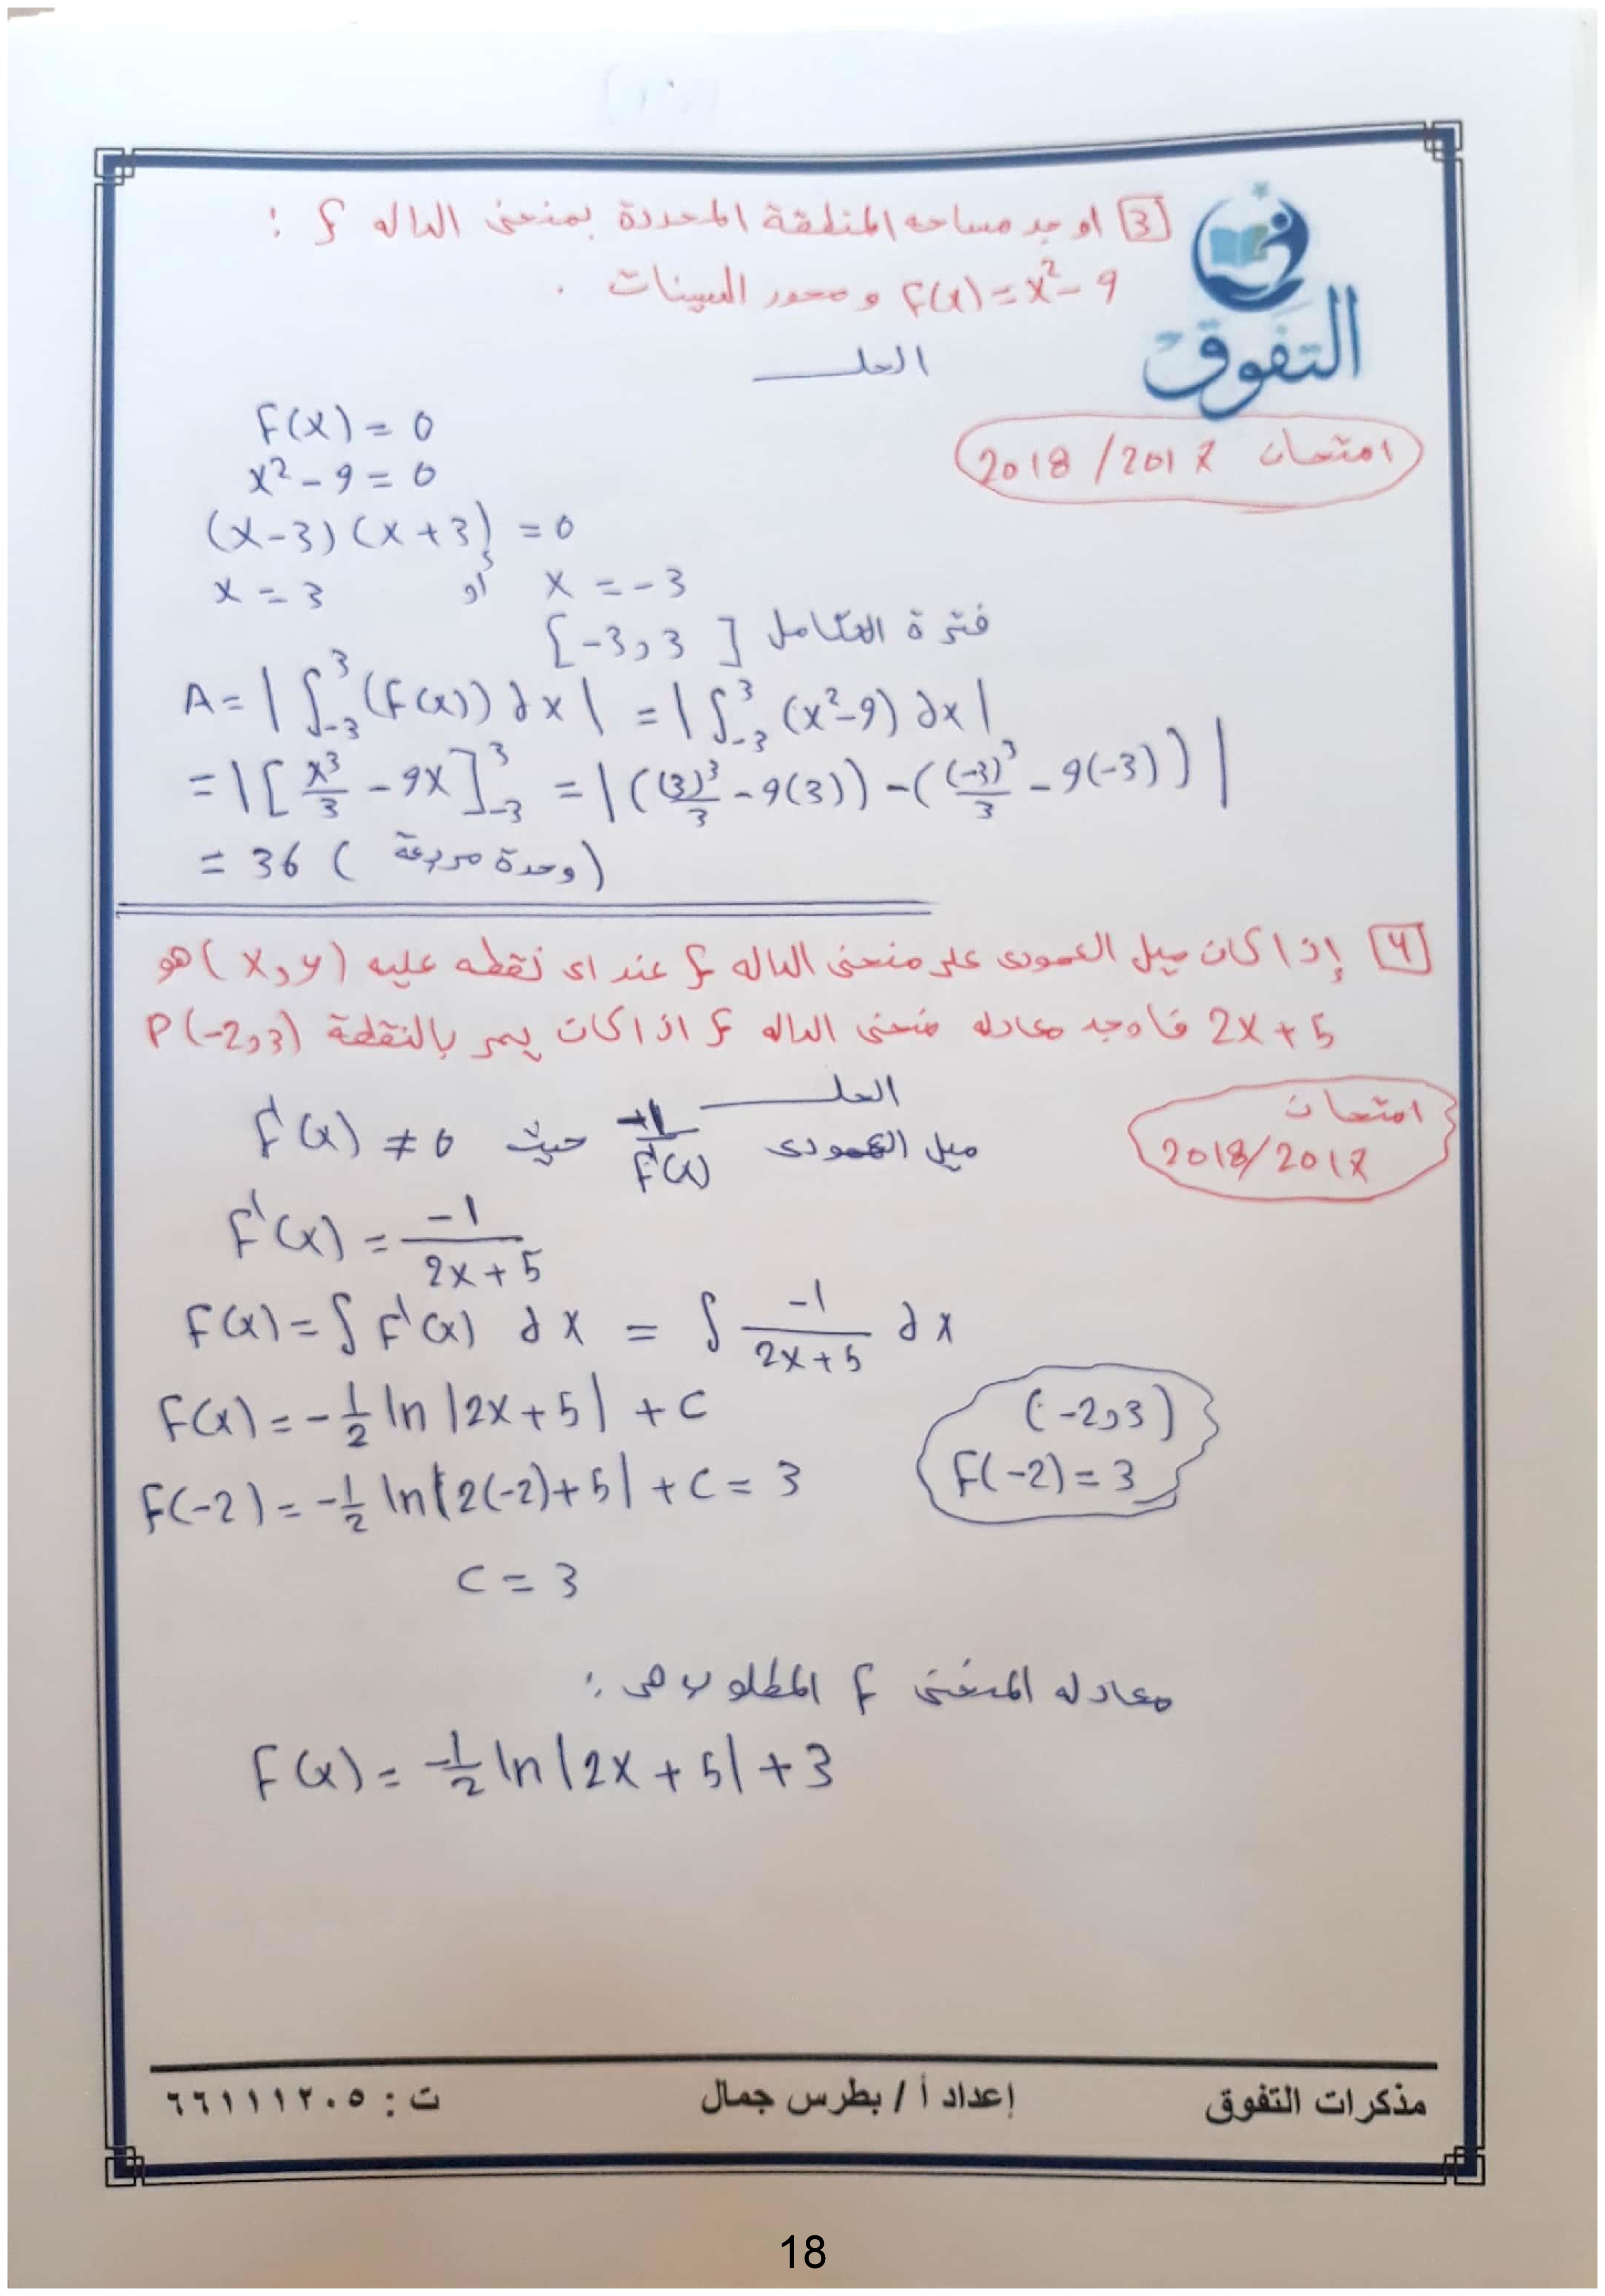 [3] اوجد مساحه المنطقة المحددة بمنحنى الداله f :
f(x) = x² - 9 و محور السينات .
التفوق
الحل
امتحان 2017/2018
F(x) = 0
x² - 9 = 0
(x-3)(x+3) = 0
x = 3 أو x = -3
فترة التكامل [-3, 3]
A = |∫₋₃³ (f(x)) dx| = |∫₋₃³ (x²-9) dx|
= |[x³/3 - 9x]₋₃³ = |((3)³/3 - 9(3)) - ((-3)³/3 - 9(-3))|
= 36 (وحدة مربعة)
[4] إذا كان ميل العمودى على منحنى الداله f عند اى نقطه عليه (x, y) هو
2x + 5 فاوجد معادله منحنى الداله f اذا كان يمر بالنقطة P(-2, 3)
الحل
امتحان
2017/2018
ميل العمودى -1/f'(x) حيث f'(x) ≠ 0
F'(x) = -1/(2x+5)
F(x) = ∫ F'(x) dx = ∫ -1/(2x+5) dx
F(x) = -1/2 ln|2x+5| + C
(-2, 3)
F(-2) = 3
F(-2) = -1/2 ln|2(-2)+5| + C = 3
C = 3
معادله المنحنى f المطلوب هى :
F(x) = -1/2 ln|2x+5| + 3
مذكرات التفوق إعداد أ / بطرس جمال ت : ٦٦١١١٢٠٥
18